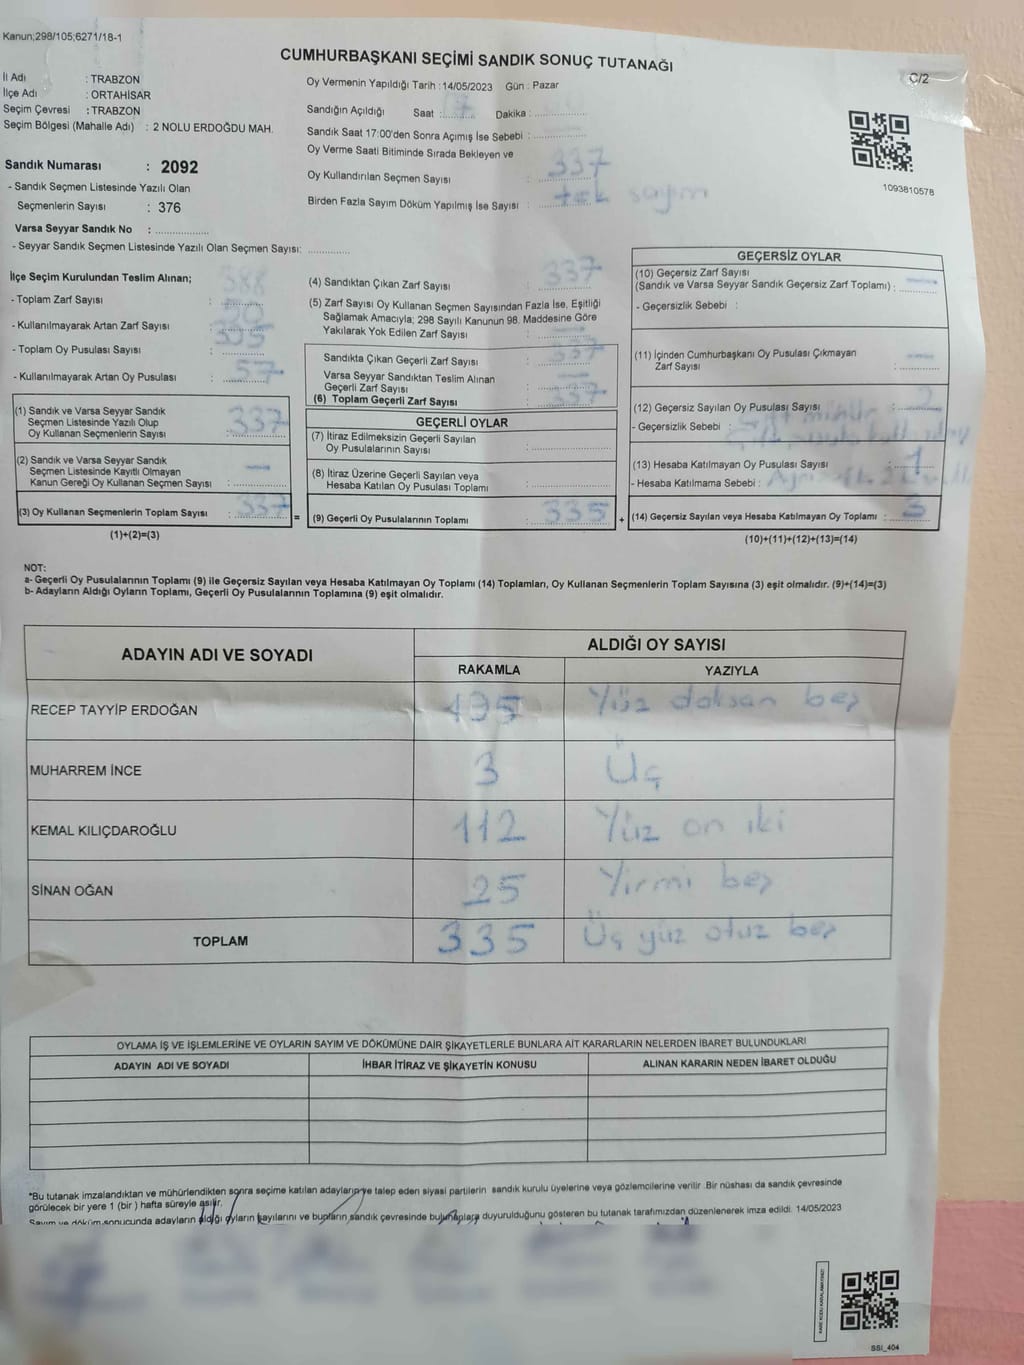 Kanun;298/105;6271/18-1
CUMHURBAŞKANI SEÇİMİ SANDIK SONUÇ TUTANAĞI
C/2
İl Adı : TRABZON
İlçe Adı : ORTAHİSAR
Seçim Çevresi : TRABZON
Seçim Bölgesi (Mahalle Adı) : 2 NOLU ERDOĞDU MAH.
Sandık Numarası : 2092
- Sandık Seçmen Listesinde Yazılı Olan
Seçmenlerin Sayısı : 376
Varsa Seyyar Sandık No :
- Seyyar Sandık Seçmen Listesinde Yazılı Olan Seçmen Sayısı:
Oy Vermenin Yapıldığı Tarih : 14/05/2023 Gün : Pazar
Sandığın Açıldığı Saat : 17 Dakika :
Sandık Saat 17:00'den Sonra Açımış İse Sebebi :
Oy Verme Saati Bitiminde Sırada Bekleyen ve
Oy Kullandırılan Seçmen Sayısı : 337
Birden Fazla Sayım Döküm Yapılmış İse Sayısı : tek sayım
1093810578
İlçe Seçim Kurulundan Teslim Alınan;
- Toplam Zarf Sayısı : 388
- Kullanılmayarak Artan Zarf Sayısı : 50
- Toplam Oy Pusulası Sayısı : 395
- Kullanılmayarak Artan Oy Pusulası : 57
(1) Sandık ve Varsa Seyyar Sandık
Seçmen Listesinde Yazılı Olup
Oy Kullanan Seçmenlerin Sayısı : 337
(2) Sandık ve Varsa Seyyar Sandık
Seçmen Listesinde Kayıtlı Olmayan
Kanun Gereği Oy Kullanan Seçmen Sayısı : —
(3) Oy Kullanan Seçmenlerin Toplam Sayısı : 337
(1)+(2)=(3)
=
(4) Sandıktan Çıkan Zarf Sayısı : 337
(5) Zarf Sayısı Oy Kullanan Seçmen Sayısından Fazla İse, Eşitliği
Sağlamak Amacıyla; 298 Sayılı Kanunun 98. Maddesine Göre
Yakılarak Yok Edilen Zarf Sayısı : —
Sandıkta Çıkan Geçerli Zarf Sayısı : 337
Varsa Seyyar Sandıktan Teslim Alınan
Geçerli Zarf Sayısı : —
(6) Toplam Geçerli Zarf Sayısı : 337
GEÇERLİ OYLAR
(7) İtiraz Edilmeksizin Geçerli Sayılan
Oy Pusulalarının Sayısı :
(8) İtiraz Üzerine Geçerli Sayılan veya
Hesaba Katılan Oy Pusulası Toplamı :
(9) Geçerli Oy Pusulalarının Toplamı : 335
+
GEÇERSİZ OYLAR
(10) Geçersiz Zarf Sayısı
(Sandık ve Varsa Seyyar Sandık Geçersiz Zarf Toplamı) : —
- Geçersizlik Sebebi :
(11) İçinden Cumhurbaşkanı Oy Pusulası Çıkmayan
Zarf Sayısı : —
(12) Geçersiz Sayılan Oy Pusulası Sayısı : 2
- Geçersizlik Sebebi :
(13) Hesaba Katılmayan Oy Pusulası Sayısı : 1
- Hesaba Katılmama Sebebi :
(14) Geçersiz Sayılan veya Hesaba Katılmayan Oy Toplamı : 3
(10)+(11)+(12)+(13)=(14)
NOT:
a- Geçerli Oy Pusulalarının Toplamı (9) ile Geçersiz Sayılan veya Hesaba Katılmayan Oy Toplamı (14) Toplamları, Oy Kullanan Seçmenlerin Toplam Sayısına (3) eşit olmalıdır. (9)+(14)=(3)
b- Adayların Aldığı Oyların Toplamı, Geçerli Oy Pusulalarının Toplamına (9) eşit olmalıdır.
ADAYIN ADI VE SOYADI
ALDIĞI OY SAYISI
RAKAMLA YAZIYLA
RECEP TAYYİP ERDOĞAN 195 Yüz doksan beş
MUHARREM İNCE 3 Üç
KEMAL KILIÇDAROĞLU 112 Yüz on iki
SİNAN OĞAN 25 Yirmi beş
TOPLAM 335 Üç yüz otuz beş
OYLAMA İŞ VE İŞLEMLERİNE VE OYLARIN SAYIM VE DÖKÜMÜNE DAİR ŞİKAYETLERLE BUNLARA AİT KARARLARIN NELERDEN İBARET BULUNDUKLARI
ADAYIN ADI VE SOYADI İHBAR İTİRAZ VE ŞİKAYETİN KONUSU ALINAN KARARIN NEDEN İBARET OLDUĞU
*Bu tutanak imzalandıktan ve mühürlendikten sonra seçime katılan adayların ve talep eden siyasi partilerin sandık kurulu üyelerine veya gözlemcilerine verilir. Bir nüshası da sandık çevresinde
görülecek bir yere 1 (bir) hafta süreyle asılır.
Sayım ve döküm sonucunda adayların aldığı oyların sayılarını ve bunların sandık çevresinde bulunanlara duyurulduğunu gösteren bu tutanak tarafımızdan düzenlenerek imza edildi. 14/05/2023
SSI_404